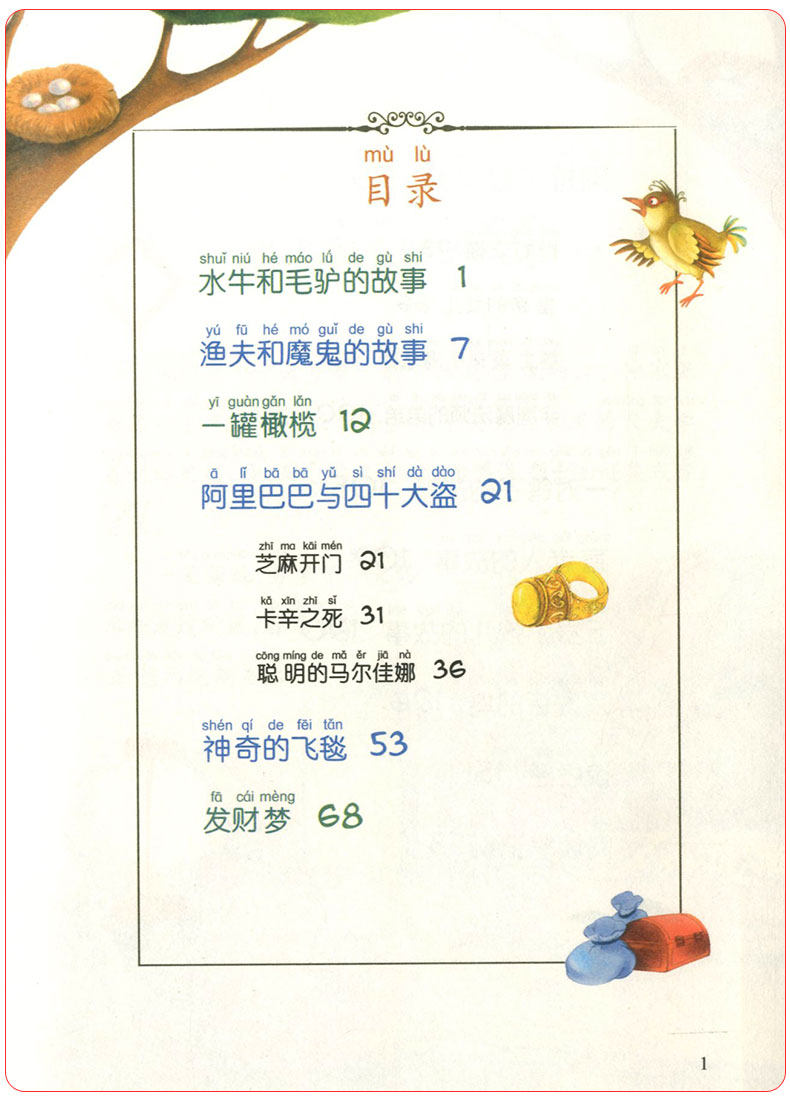 mù lù
目录
shuǐ niú hé máo lǘ de gù shi
水牛和毛驴的故事 1
yú fū hé mó guǐ de gù shi
渔夫和魔鬼的故事 7
yī guàn gǎn lǎn
一罐橄榄 12
ā lǐ bā bā yǔ sì shí dà dào
阿里巴巴与四十大盗 21
zhī ma kāi mén
芝麻开门 21
kǎ xīn zhī sǐ
卡辛之死 31
cōng míng de mǎ ěr jiā nà
聪明的马尔佳娜 36
shén qí de fēi tǎn
神奇的飞毯 53
fā cái mèng
发财梦 68
1